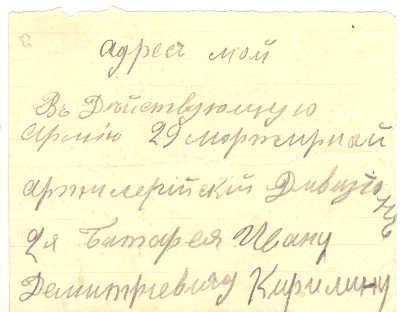 адресъ мой
Въ Действующую
Армію 29 мортирной
артилерійскій Дивизіонъ
2я Батарея Ивану
Демитріевичу Кирилину